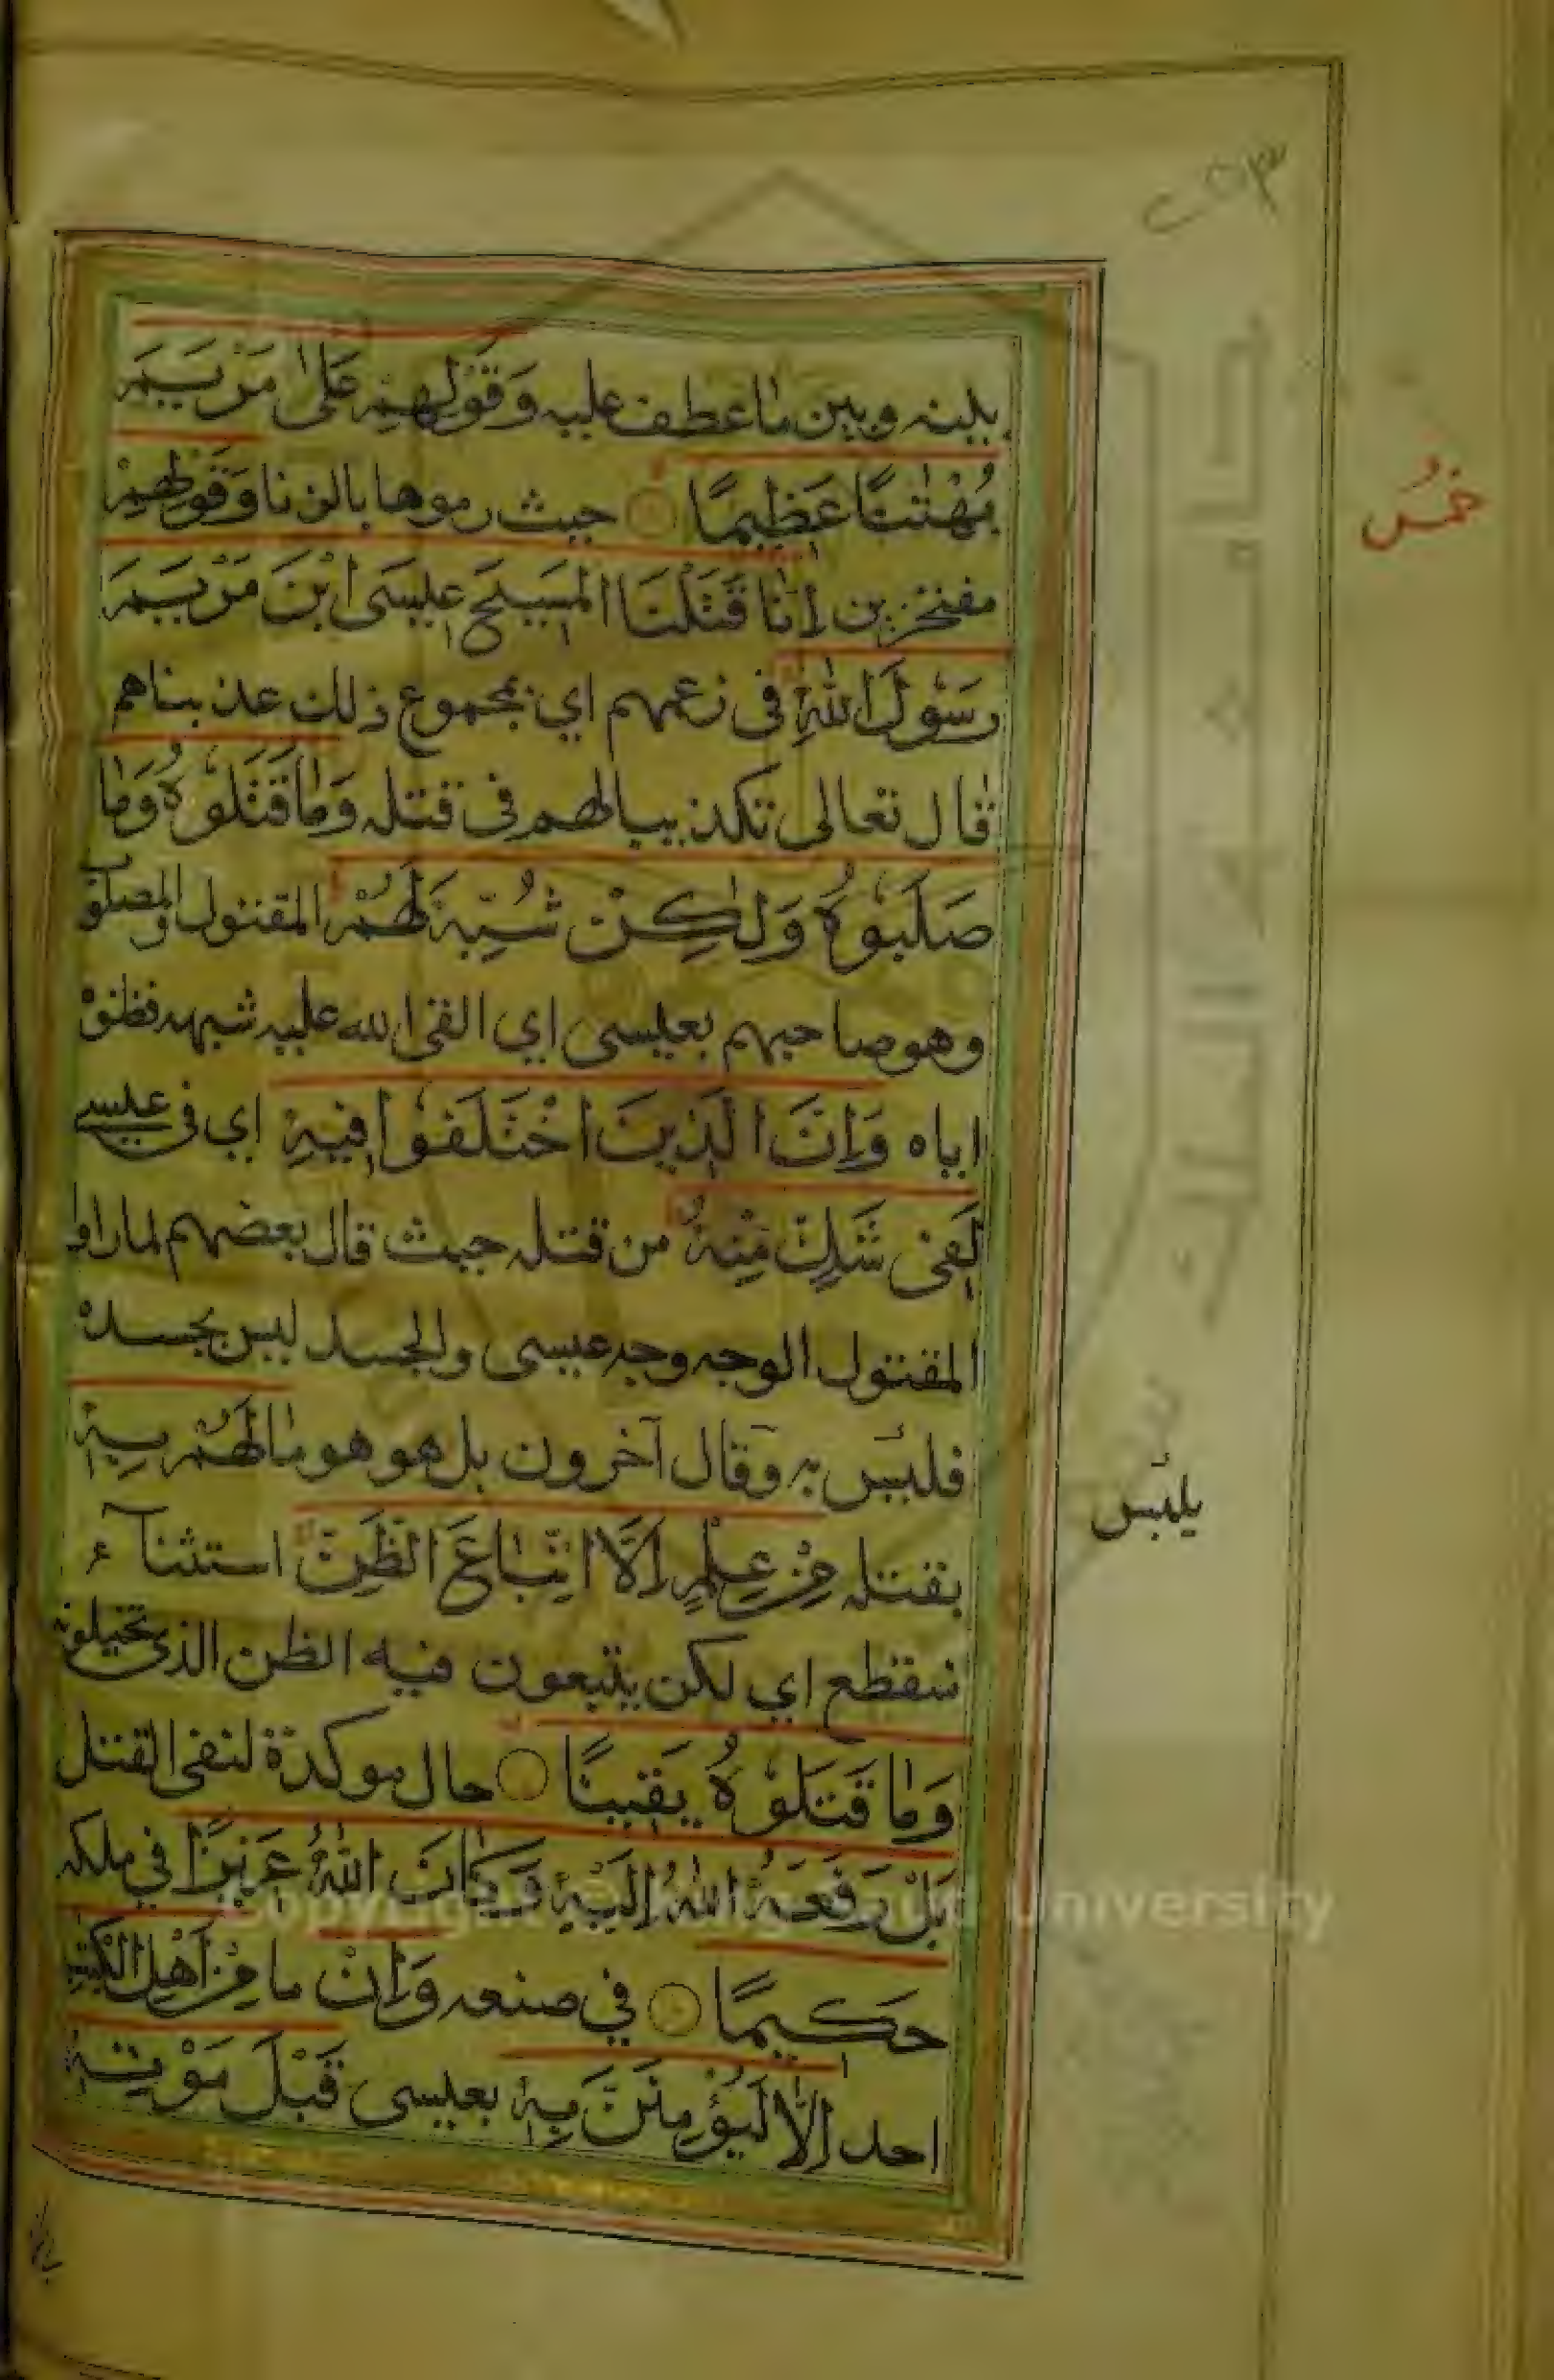 بينه وبين ما عطف عليه وَقَوْلِهِمْ عَلٰى مَرْيَمَ
بُهْتٰنًا عَظِيمًا حيث رموها بالزنا وَقَوْلِهِمْ
مفتخرين اِنَّا قَتَلْنَا الْمَسِيحَ عِيسَى ابْنَ مَرْيَمَ
رَسُولَ اللّٰهِ فى زعمهم اي بمجموع ذلك عذبناهم
قال تعالى تكذيبا لهم فى قتله وَمَا قَتَلُوْهُ وَمَا
صَلَبُوْهُ وَلٰكِنْ شُبِّهَ لَهُمْ المقتول والمصلوب
وهو صاحبهم بعيسى اي القى الله عليه شبهه فظنوْ
اياه وَاِنَّ الَّذِينَ اخْتَلَفُوْا فِيهِ اي فى عيسى
لَفِى شَكٍّ مِّنْهُ من قتله حيث قال بعضهم لما راوا
المقتول الوجه وجه عيسى والجسد ليس بجسده
فليس به وقال آخرون بل هو هو مَا لَهُمْ بِهٖ
بقتله مِنْ عِلْمٍ اِلَّا اتِّبَاعَ الظَّنِّ استثناء
منقطع اي لكن يتبعون فيه الظن الذى تخيلوه
وَمَا قَتَلُوْهُ يَقِينًا حال موكدة لنفى القتل
بَلْ رَفَعَهُ اللّٰهُ اِلَيْهِ وَكَانَ اللّٰهُ عَزِيزًا في ملكه
حَكِيمًا في صنعه وَاِنْ ما مِنْ اَهْلِ الْكِتٰبِ
احد اِلَّا لَيُؤْمِنَنَّ بِهٖ بعيسى قَبْلَ مَوْتِهٖ
خمُس
يلبس
Copyright © King Saud University